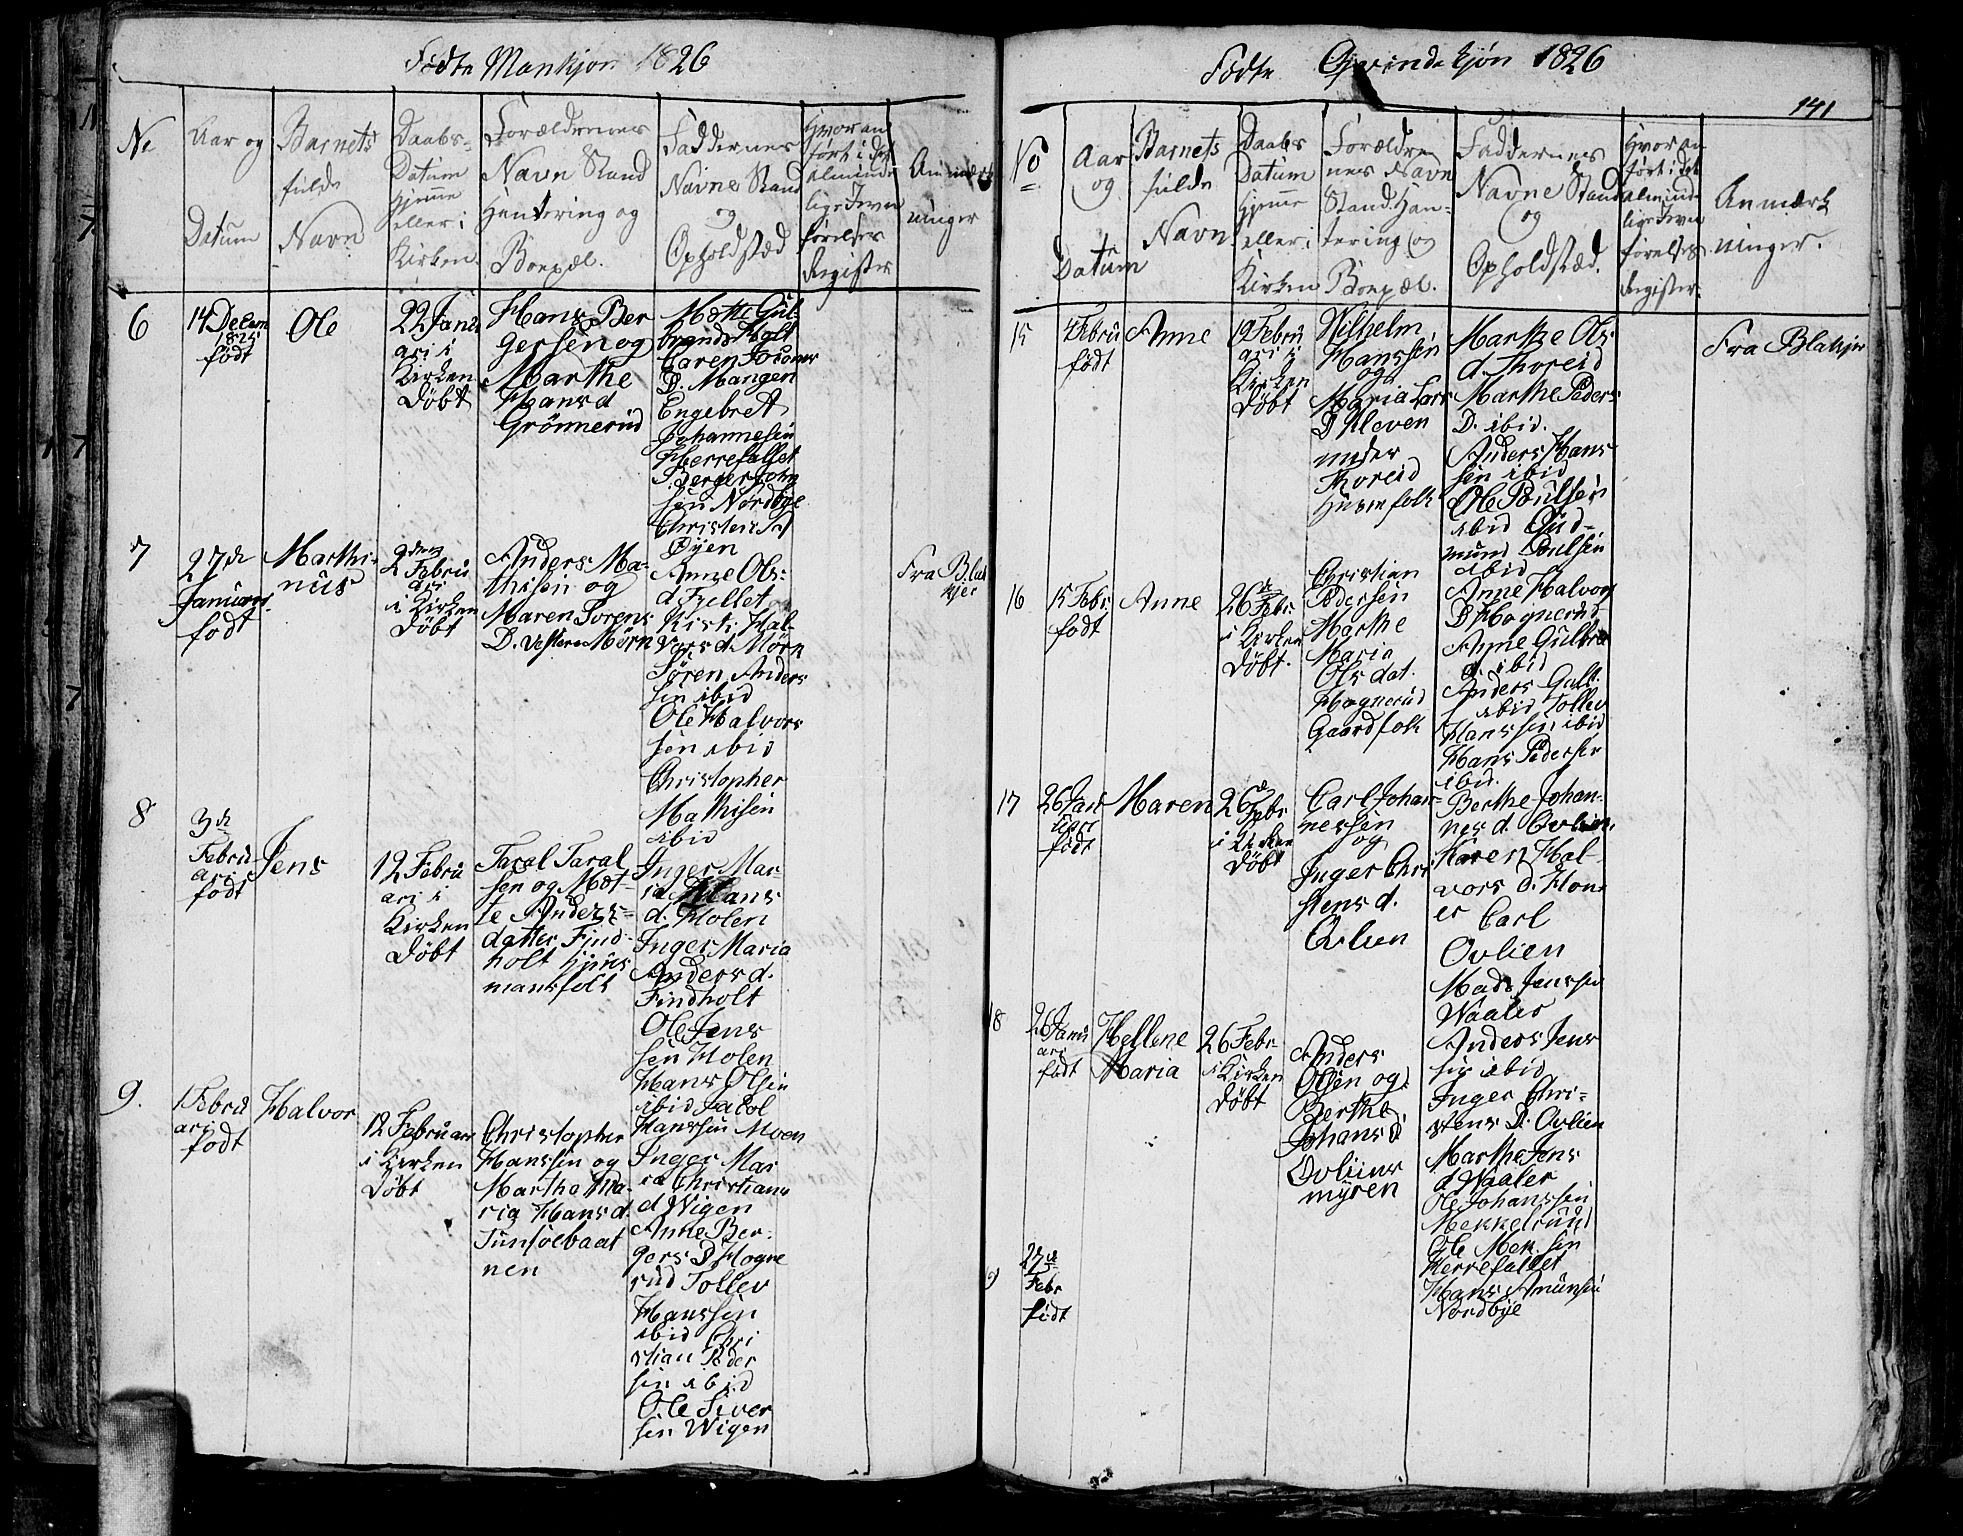 Fødte Mankjøn 1826
No
Aar og
Datum
Barnets
fulde
Navn
Daabs-
Datum
hjemme
eller i
Kirken
Forældrenes
Navn Stand
Handtering og
Boepæl.
Faddernes
Navne Stand
og
Opholdstæd
Hvor an
ført i det
alminde
lige Jevn
førelses
Register
Anmærk
ninger
6
14 Decem
1825
født
Ole
22 Janu
ari i
Kirken
Døbt
Hans Ber
gersen og
Marthe
Hansd
Grønnerud
Mette Gul-
brands Holt
Caren
D. Mangen
Engebret
Johannesen
Herrefallet
Berger John
sen Nordbye
Christen
Øyen
7
27de
Januari
født
Marthi-
nus
2den
Febru
ari
i Kirken
Døbt
Anders Ma-
thisen og
Maren Sorens
D. Vestere Mørn
Anne Ols-
d. Fjellet
Kisti Hal-
vors d. Mørn
Søren Anders
sen ibid
Ole Halvors
sen ibid
Christopher
Mathisen
ibid
Fra Blak
kjer
8
3de
Febru
ari
født
Jens
12 Febru
ari i
Kirken
Døbt
Taral Taral
sen og Met-
te Anders-
datter Find-
holt Huus
mansfolk
Inger Mar-
ia Hans
d. Holen
Inger Maria
Anders d.
Findholt
Ole Jens
sen Holen
Hans Olsen
ibid Jacob
Hanssen Moen
9.
1 Febru
ari
født
Halvor
12 Februari
i Kirken
Døbt
Christopher
Hanssen og
Marthe Ma-
ria Hansd.
Tunsøebaat
nen
Inger Mar
ia Christians
d Wigen
Anne Ber-
gers D Hogne
rud Tollev
Hanssen
ibid Chri
stian Peder
sen ibid
Ole Siver
sen Wigen
Fødte Qvindekjøn 1826
141
No
Aar
og
Datum
Barnets
fulde
Navn
Daabs
Datum
hjemme
eller i
Kirken
Forældre
nes Navn
Stand Han-
tering og
Boepæl.
Faddernes
Navne Stand
og
Opholdstæd.
Hvor an
ført i det
alminde
lige Jevn
førelses
Register
Anmærk
ninger.
15
4 Febru
født
Anne
19 Febru
ari i
Kirken
Døbt
Wilhelm
Hanssen
og
Maria Lars
D Kleven
under
Thoreid
Huusmfolk
Marthe Ols
d. Thoreid
Marthe Peders
D. ibid.
Anders Hans-
sen ibid
Ole Poulsen
ibid Gud-
mund Poulsen
ibid
Fra Blakjer
16
15 Febr.
født
Anne
26de Febr.
i Kirken
Døbt.
Christian
Pedersen
Marthe
Maria
Ols dat.
Hognerud
Gaardfolk
Anne Halvor
D Hognerud
Anne Gulbra
d. ibid
Anders Gulb.
ibid Tollev
Hanssen ibid
Hans Pedersen
ibid.
17
26 Janu
ari
født
Maren
26de Febr
i Kirken
Døbt
Carl Johan-
nessen
og
Inger Chri
stens d.
Ovlien
Berthe Johan-
nes d. Ovlien
Karen Hal-
vors d. Hon-
er Carl
Ovlien
Mads Jenssen
Waaler
18
26 Janu
ari
født
Hellene
Maria
26 Febr
i Kirken
Døbt
Anders
Olsen og
Berthe
Johans d.
Ovliens
myren
Anders Jens
sen ibid
Inger Chri-
stens D. Ovlien
Marthe Jens
d Waaler
Ole Johanssen
Mekkelrund
Ole Mek. sen
Herrefallet
Hans Amunsen
Nordbye
9
27de
Febr
født